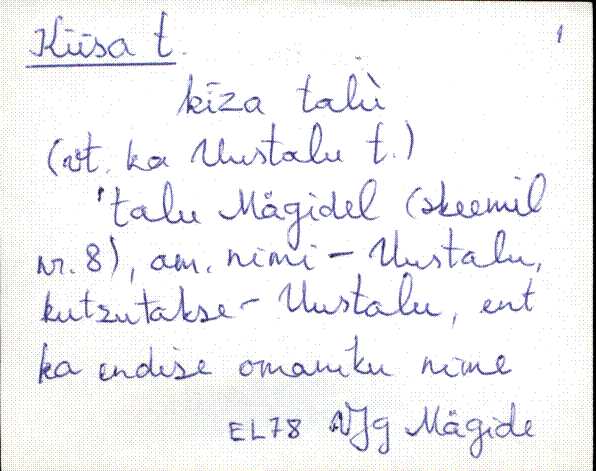 Kiisa t. 1
kīza talù
(vt. ka Uustalu t.)
'talu Mägidel (skeemil
nr. 8), am. nimi - Uustalu,
kutzutakse - Uustalu, ent
ka endise omaniku nime
EL78 VJg Mägide